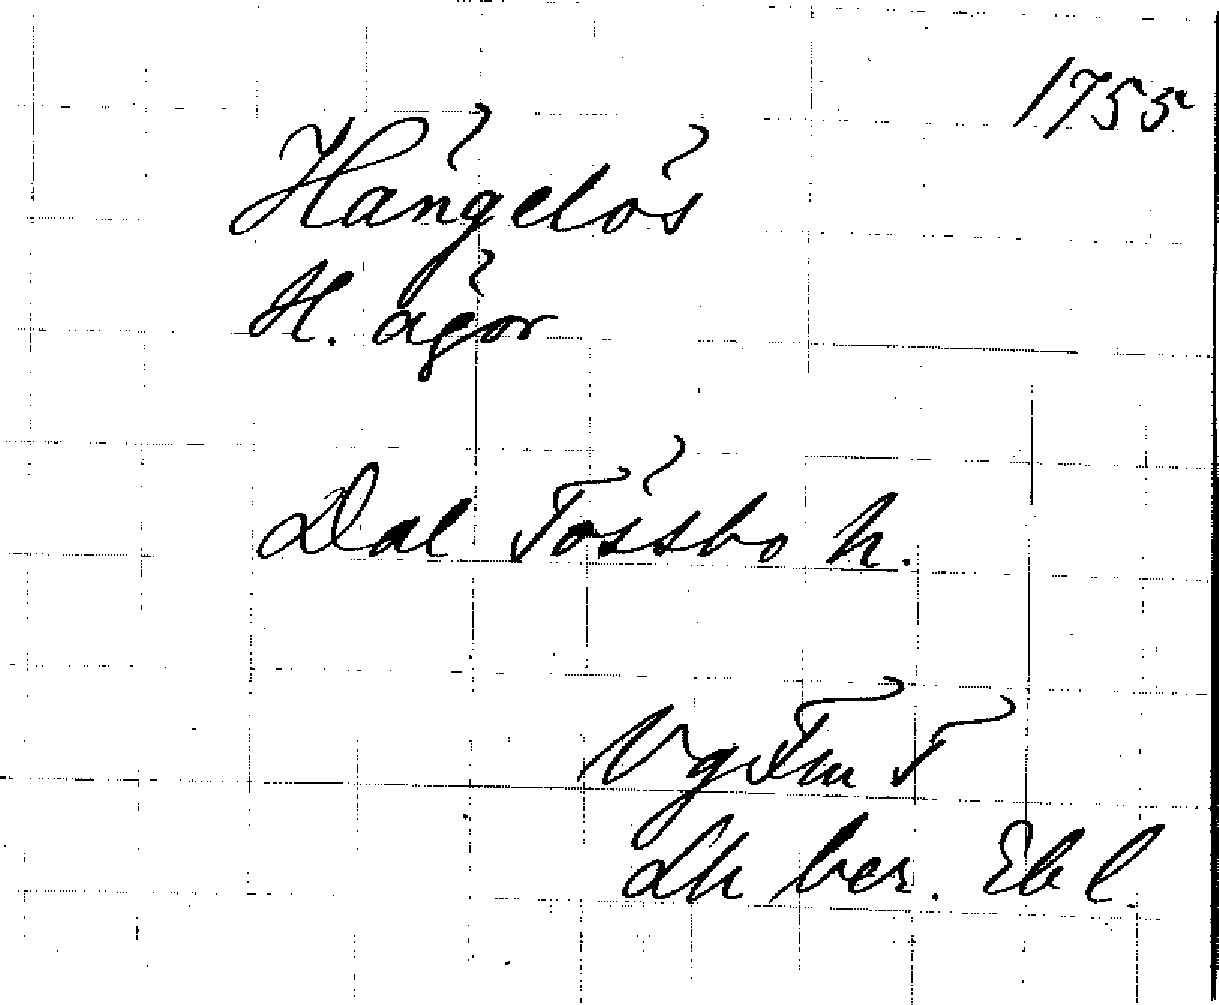 1755
Hängelös
H. ägor
Dal Tössbo h.
Vg Fm F
Lh ber. Ek l.